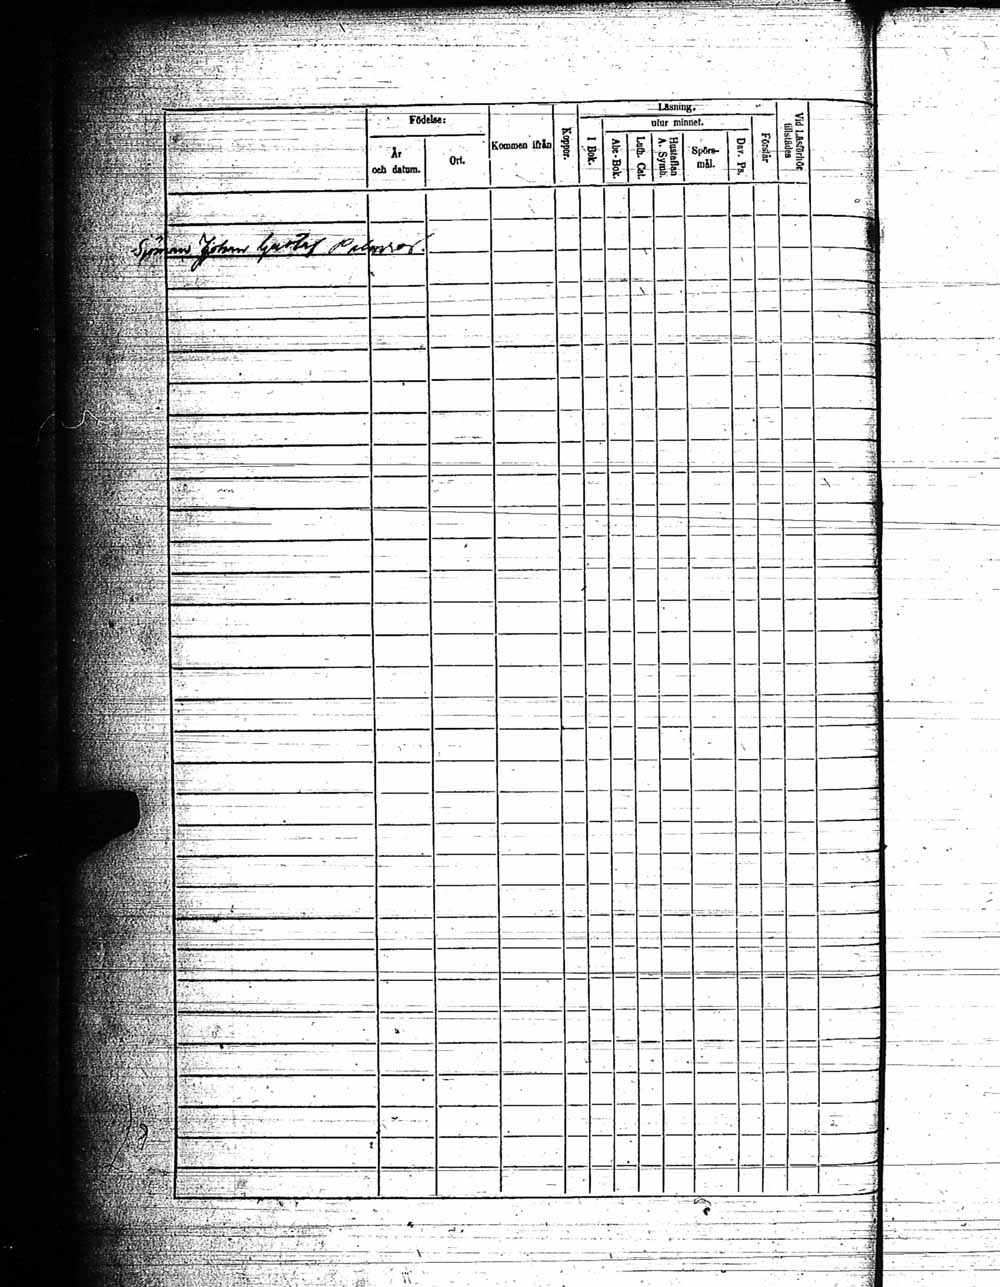 Födelse:
År
och datum.
Ort.
Kommen ifrån
Koppor.
Läsning,
I Bok.
utur minnet.
Abc-Bok.
Luth. Cat.
Hustaflan
A. Symb.
Spörs-
mål.
Dav. Ps.
Förstår
Vid Läsförhör
tillstädes
Sjöman Johan Gustaf